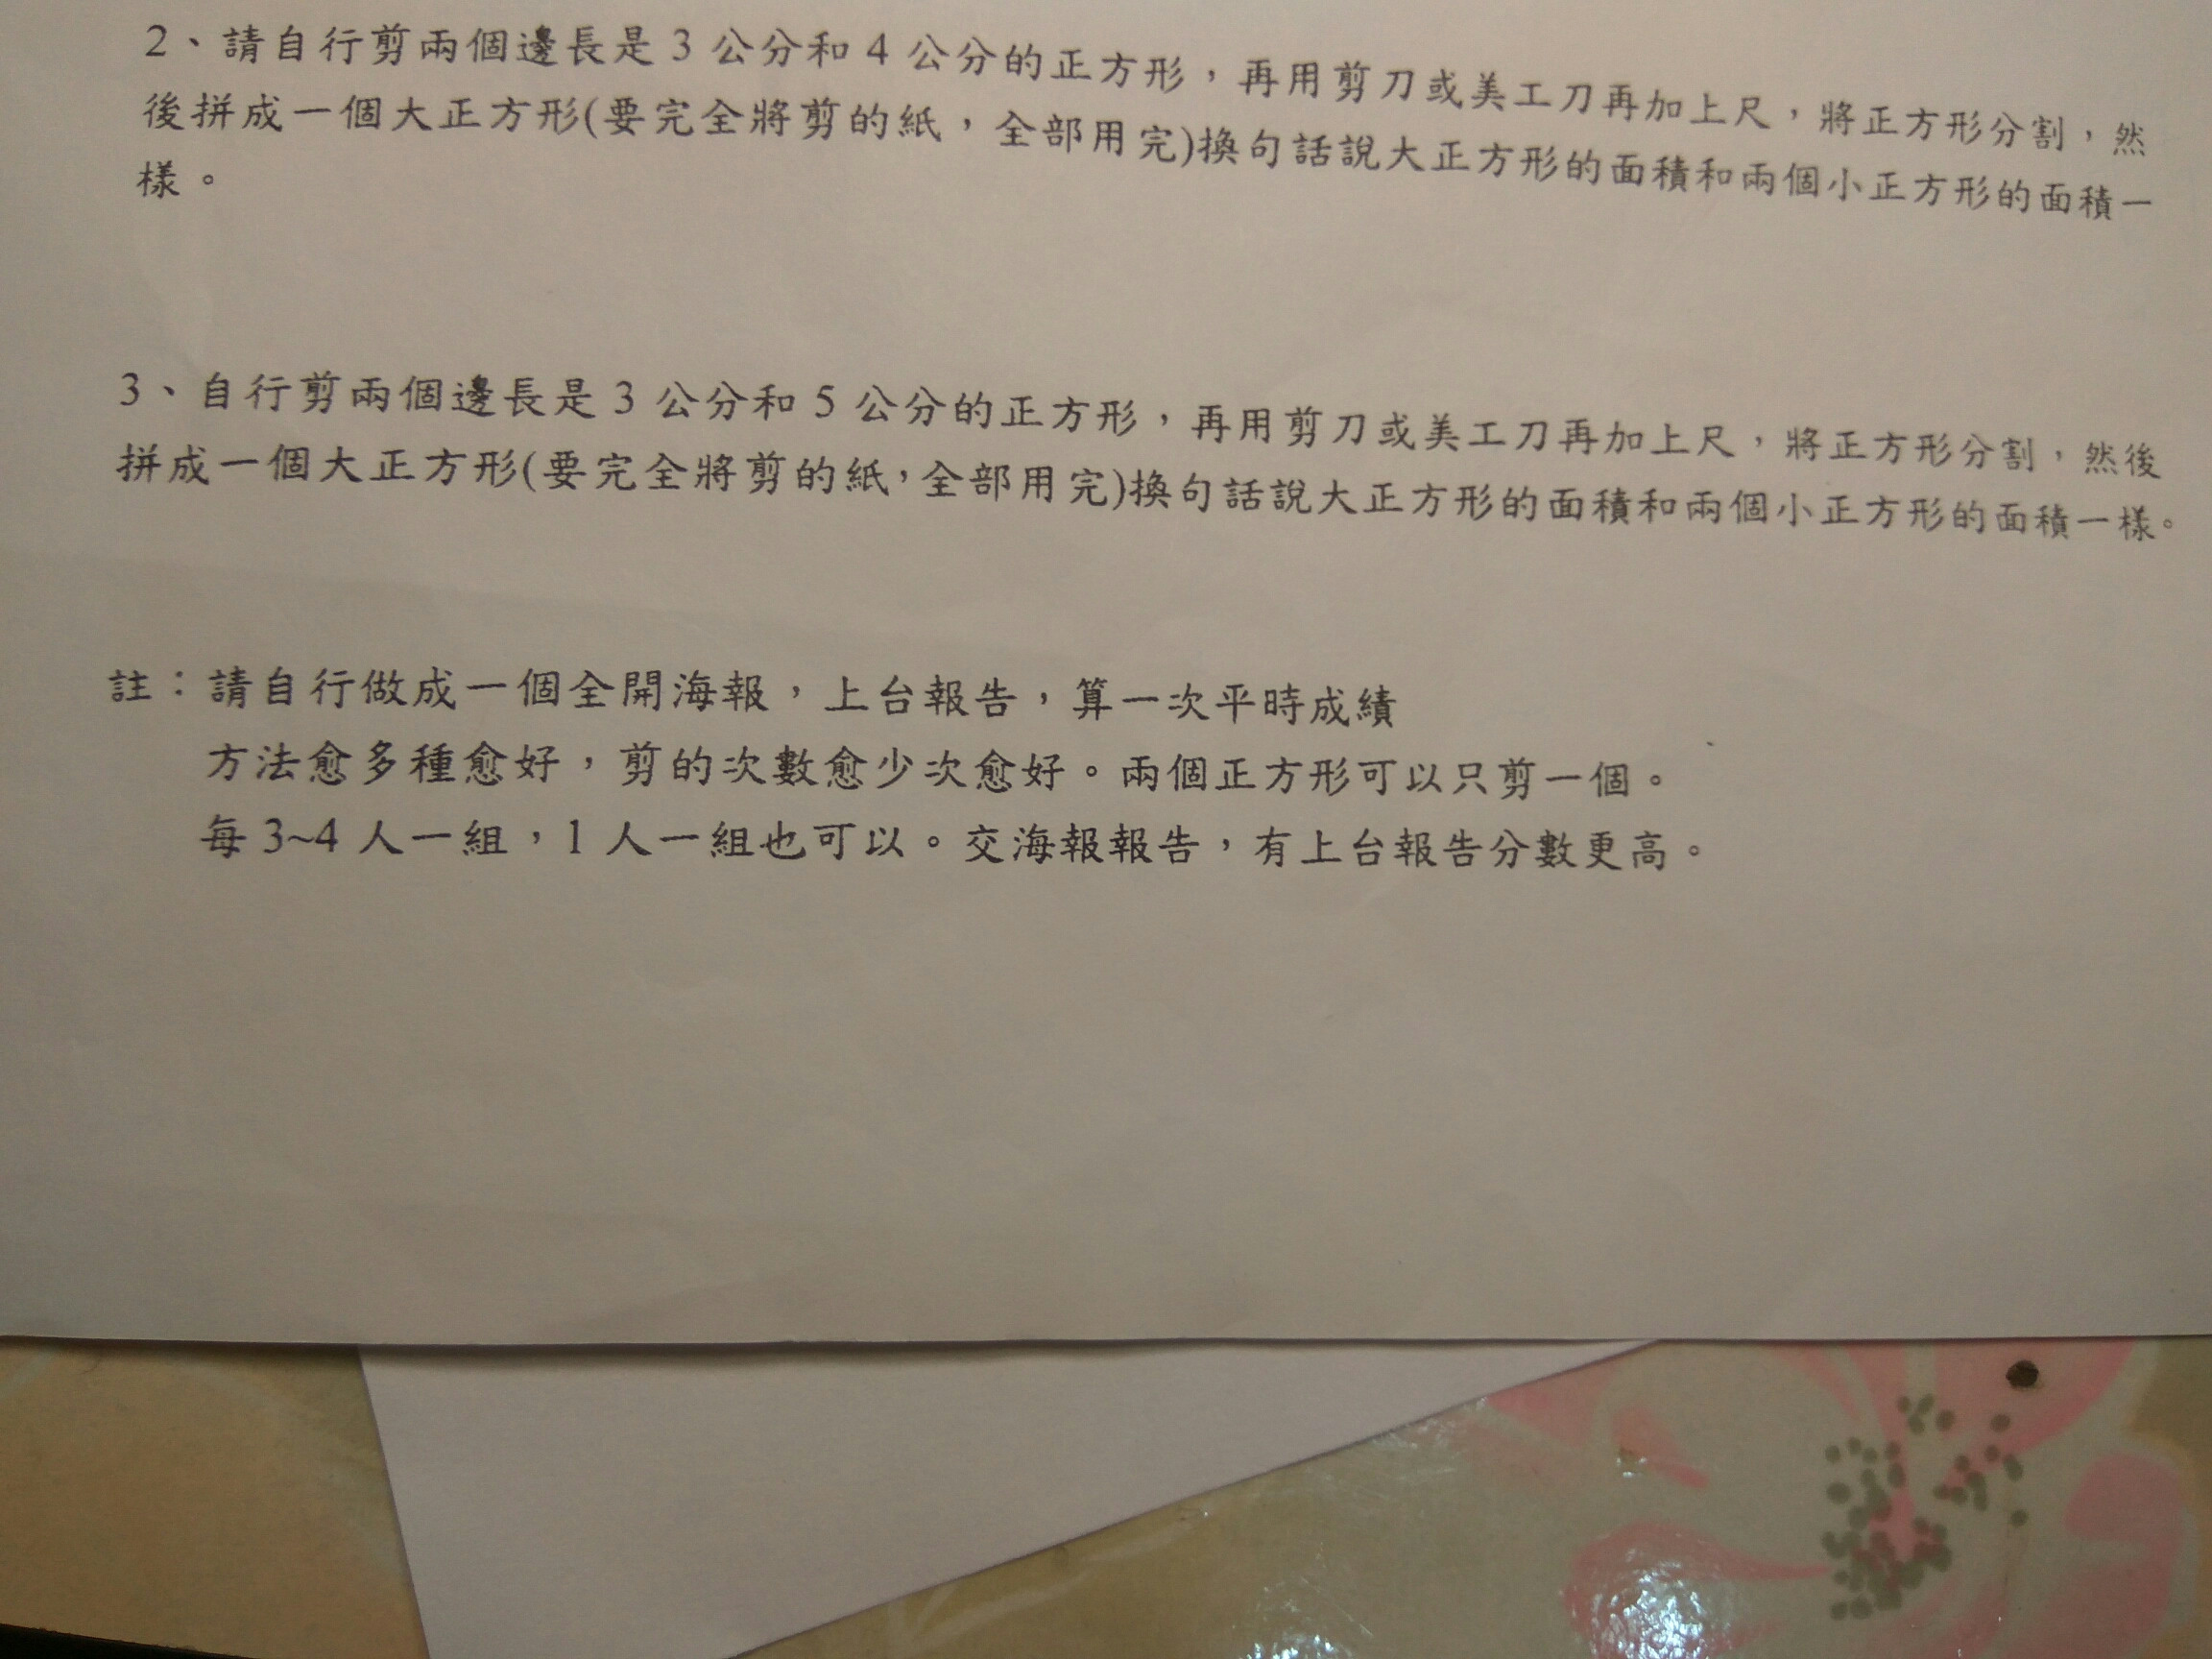 2、請自行剪兩個邊長是 3 公分和 4 公分的正方形，再用剪刀或美工刀再加上尺，將正方形分割，然
後拼成一個大正方形(要完全將剪的紙，全部用完)換句話說大正方形的面積和兩個小正方形的面積一
樣。
3、自行剪兩個邊長是 3 公分和 5 公分的正方形，再用剪刀或美工刀再加上尺，將正方形分割，然後
拼成一個大正方形(要完全將剪的紙，全部用完)換句話說大正方形的面積和兩個小正方形的面積一樣。
註：請自行做成一個全開海報，上台報告，算一次平時成績
方法愈多種愈好，剪的次數愈少次愈好。兩個正方形可以只剪一個。
每 3~4 人一組，1 人一組也可以。交海報報告，有上台報告分數更高。